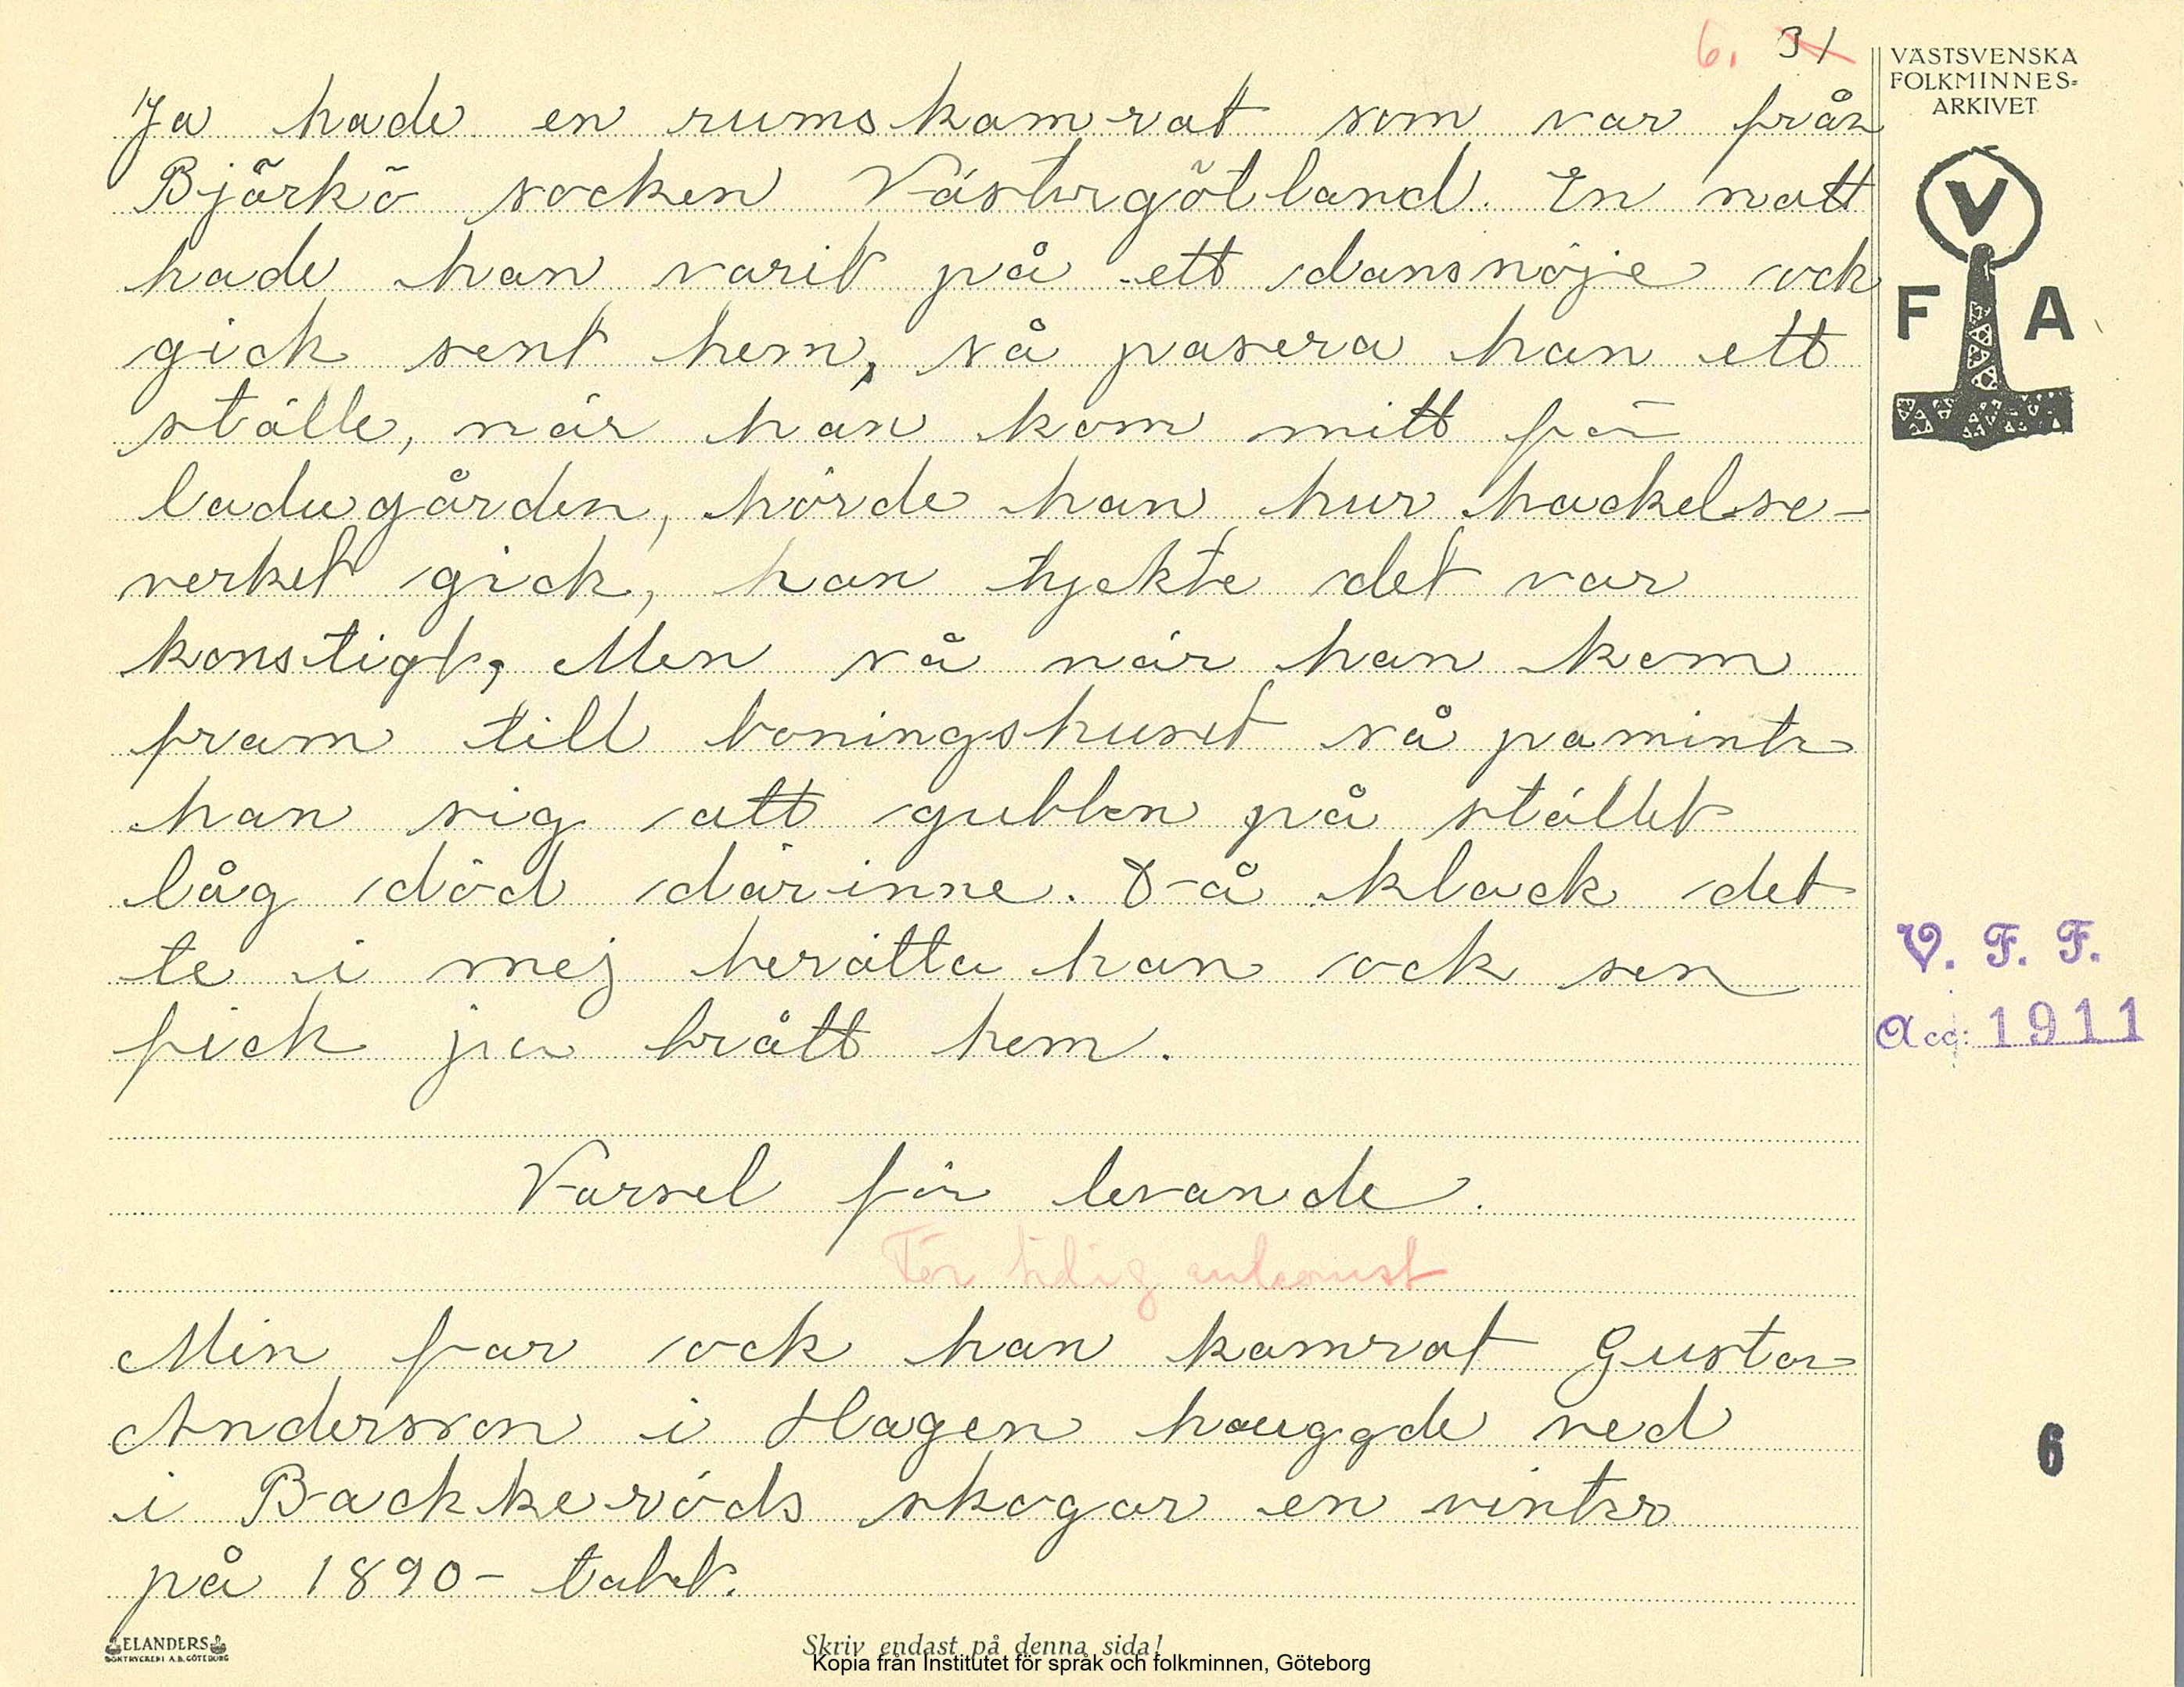 6. 31
VÄSTSVENSKA
FOLKMINNES-
ARKIVET
V
F A
Ja hade en rumskamrat som var från
Björkö socken Västergötland. En natt
hade han varit på ett dansnöje ock
gick sent hem, så pasera han ett
ställe, när han kom mitt för
ladugården, hörde han hur hackelse-
verket gick, han tyckte det var
konstigt, Men så när han kom
fram till boningshuset så paminte
han sig att gubben på stället
låg död därinne. Då klack det
te i mej berätta han ock sen
fick ja brått hem.
V. F. F.
Acc: 1911
Varsel för levande.
För tidig ankomst
Min far ock han kamrat Gustav
Andersson i Hagen hauggde ved
i Backkeröds skogar en vinter
på 1890-talet.
6
ELANDERS
BOKTRYCKERI A.B. GÖTEBORG
Skriv endast på denna sida!
Kopia från Institutet för språk och folkminnen, Göteborg